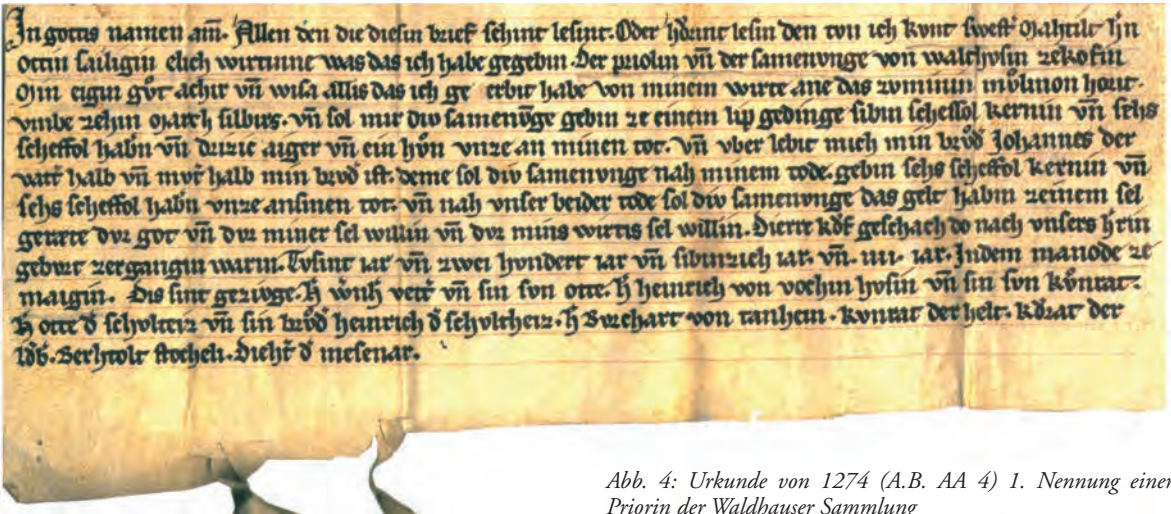 In gottis namen am̄. Allen den die diesin brief sehint lesint. Oder hörint lesin den ton ich kunt swest̄ Mahtilt h̄n
ottin sailigin elich wirtinne was das ich habe gegebin. Der priolin vn̄ der samenvnge von walthvsin zekofin
Min eigin gv̊t achir vn̄ wisa allis das ich ge erbit habe von minem wirte ane das zvminin mv̊linon hort.
vmbe zehin March silbirs. vn̄ sol mir div samenv̄ge gebin ze einem lip gedinge sibin scheffol kernin vn̄ sehs
scheffol hab̄n vn̄ drizic aiger vn̄ ein hv̊n vnze an minen tot. vn̄ vber lebit mich min brv̊d̄ Johannes der
vatt̄ halb vn̄ mv̊t̄ halb min brv̊d̄ ist. deme sol div samenvnge nah minem tode. gebin sehs scheffol kernin vn̄
sehs scheffol hab̄n vnze ansinen tot. vn̄ nah vnser beider tode sol div samenvnge das gelt habin zeinem sel
geræte dvr got vn̄ dvr miner sel willin vn̄ dvr mins wirtis sel willin. Dirre kôf geschach do nach vnsers h̄rin
gebvrt zergangin warin. Tvsint iar vn̄ zwei hvndert iar vn̄ sibinzich iar. vn̄. iiii. iar. Indem manode ze
maigin. Dis sint gezivge. h̄ vett̄ vn̄ sin svn otte. h̄ heinrich von vochin hvsin vn̄ sin svn kv̊nrat.
h̄ otte d̄ schvlteiz vn̄ sin brv̊d̄ heinrich d̄ schvltheiz. h̄ Burchart von tanhein. kvnrat der helt. kv̊rat der
Berhtolt stocheli. d̄ mesenar.
Abb. 4: Urkunde von 1274 (A.B. AA 4) 1. Nennung einer
Priorin der Waldhauser Sammlung